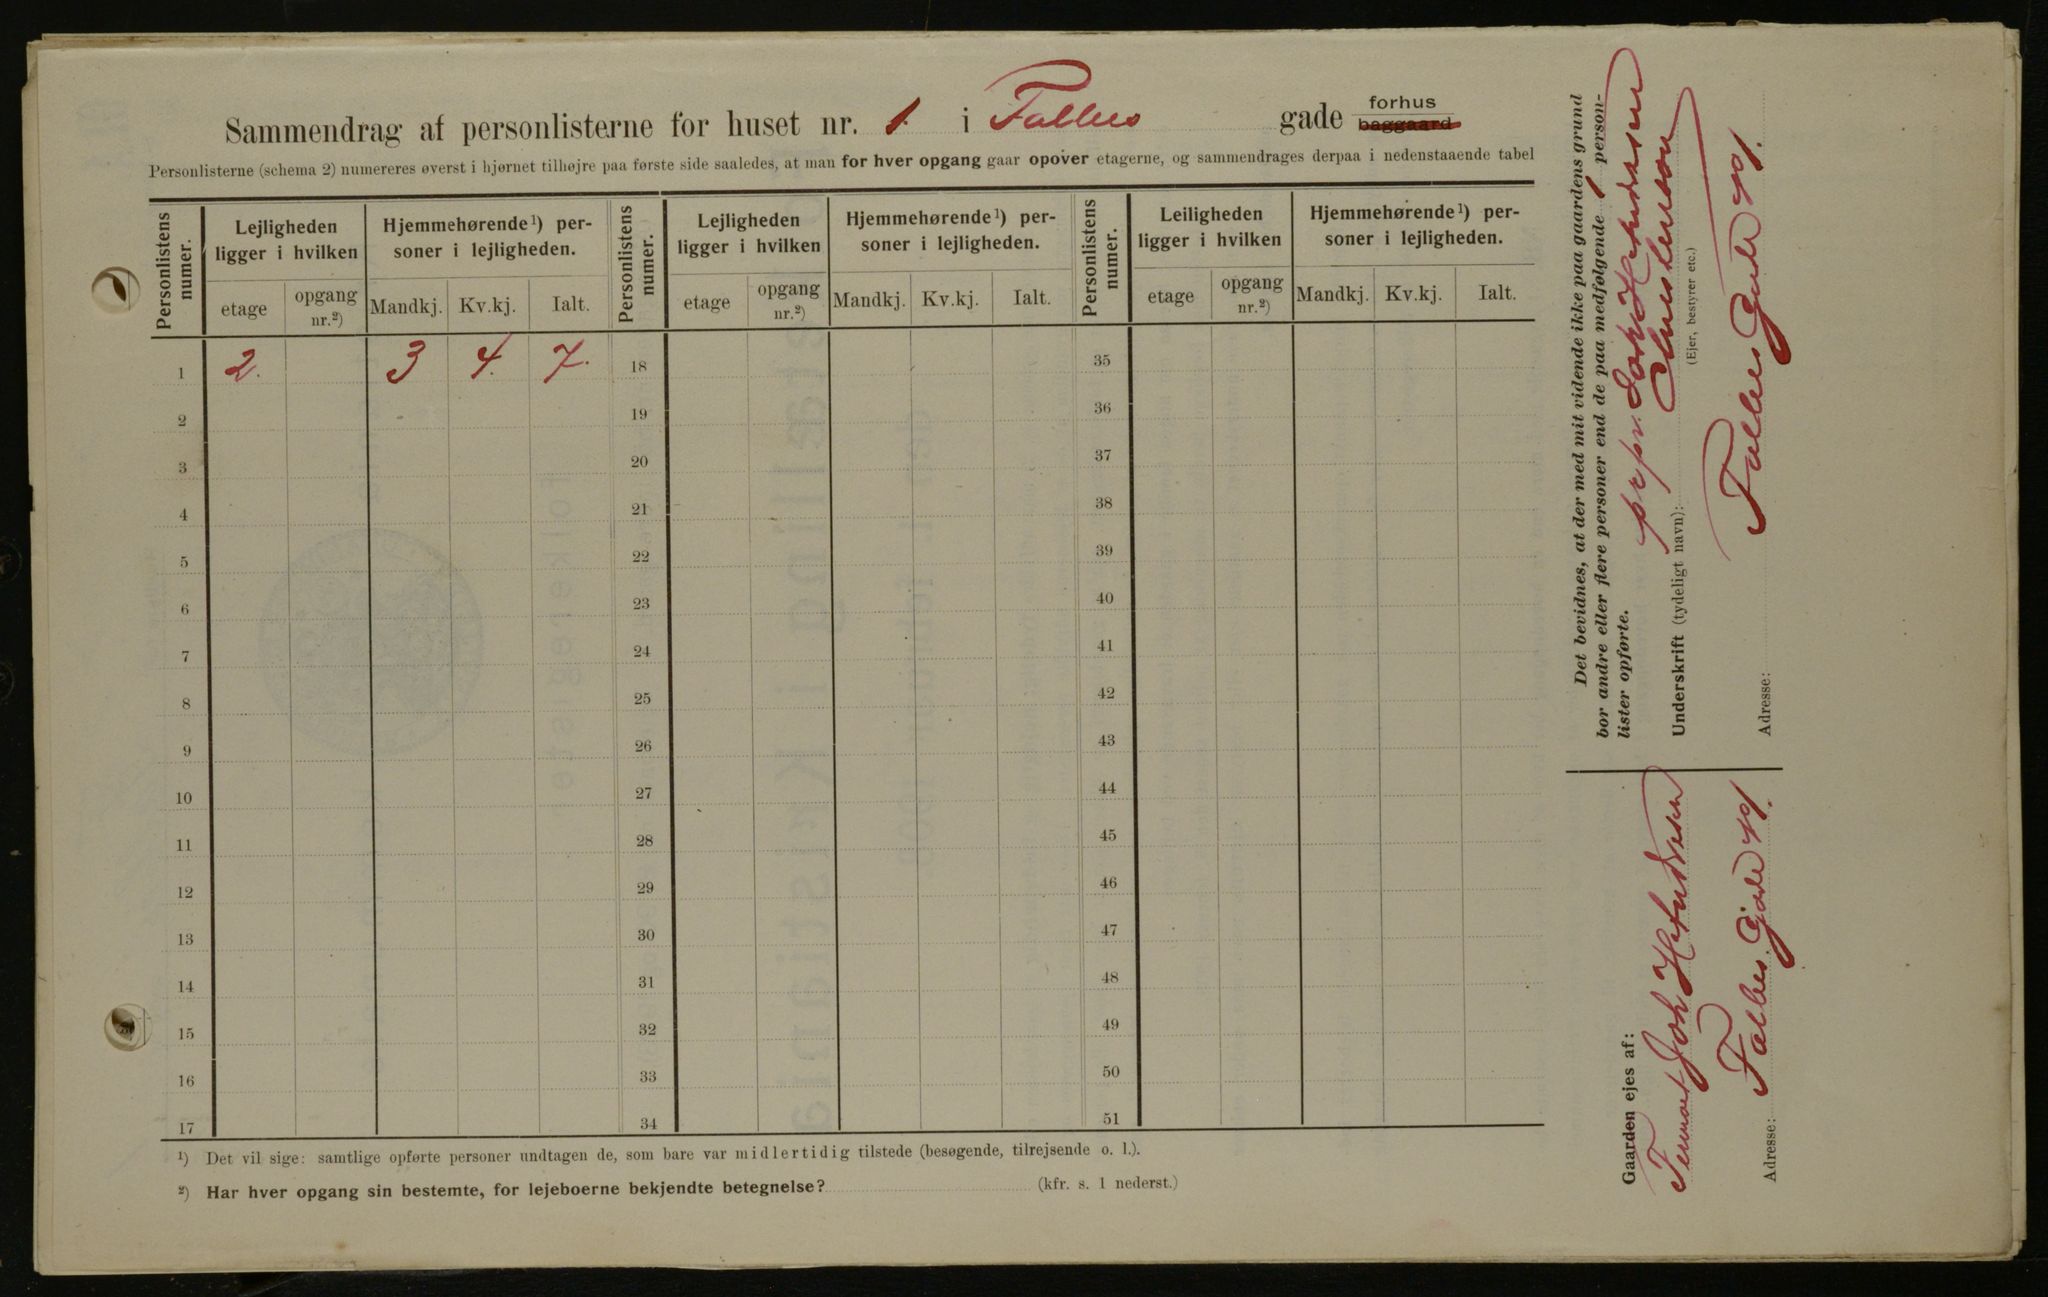 Sammendrag af personlisterne for huset nr. 1. i Falbes gade forhus baggaard
Personlisterne (schema 2) numereres øverst i hjørnet tilhøjre paa første side saaledes, at man for hver opgang gaar opover etagerne, og sammendrages derpaa i nedenstaaende tabel
Personlistens numer.
Lejligheden ligger i hvilken
etage
opgang nr.²)
Hjemmehørende¹) personer i lejligheden.
Mandkj.
Kv.kj.
Ialt.
Personlistens numer.
Lejligheden ligger i hvilken
etage
opgang nr.²)
Hjemmehørende¹) personer i lejligheden.
Mandkj.
Kv.kj.
Ialt.
Personlistens numer.
Leiligheden ligger i hvilken
etage
opgang nr.²)
Hjemmehørende¹) personer i lejligheden.
Mandkj.
Kv.kj.
Ialt.
1 2. 3 4. 7. 18 35
2 19 36
3 20 37
4 21 38
5 22 39
6 23 40
7 24 41
8 25 42
9 26 43
10 27 44
11 28 45
12 29 46
13 30 47
14 31 48
15 32 49
16 33 50
17 34 51
¹) Det vil sige: samtlige opførte personer undtagen de, som bare var midlertidig tilstede (besøgende, tilrejsende o. l.).
²) Har hver opgang sin bestemte, for lejeboerne bekjendte betegnelse? (kfr. s. 1 nederst.)
Det bevidnes, at der med mit vidende ikke paa gaardens grund
bor andre eller flere personer end de paa medfølgende 1 person-
lister opførte.
Underskrift (tydeligt navn):
(Ejer, bestyrer etc.)
Adresse: Falbes Gade №1.
Gaarden ejes af:
Joh
Adresse: Falbes Gade №1.